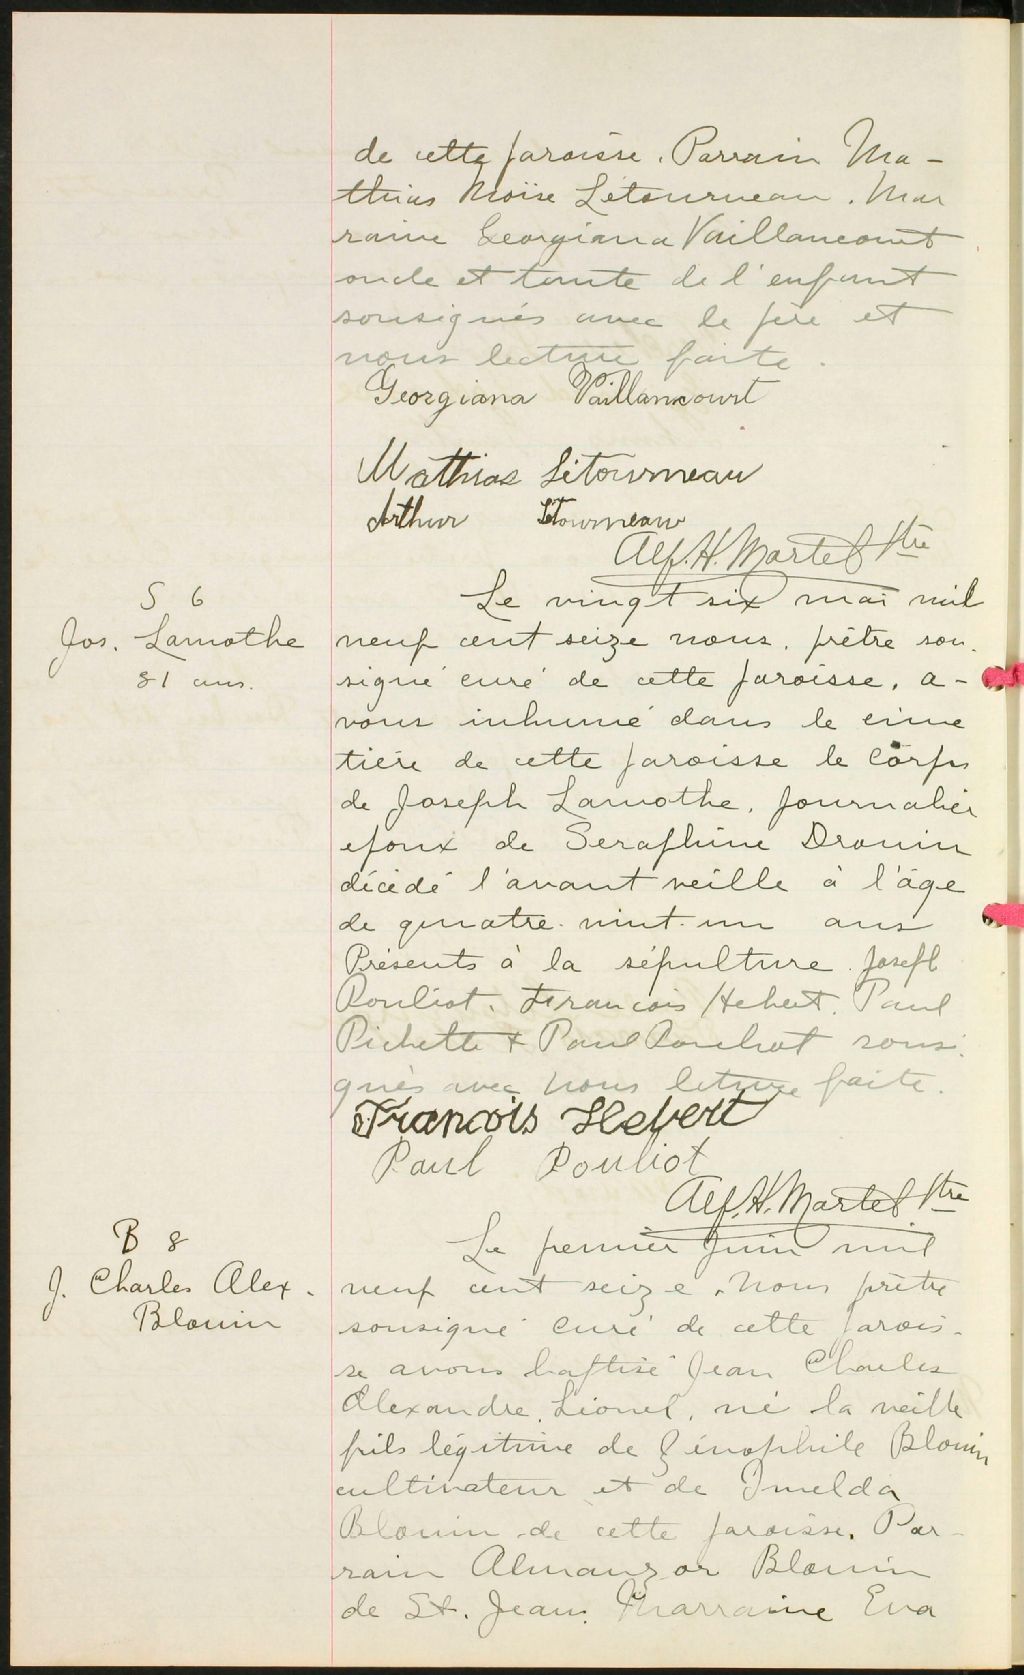 de cette paroisse. Parrain Ma-
thias Moïse Létourneau. Mar
raine Georgiana Vaillancourt
oncle et tante de l'enfant
sousignés avec le père et
nous lecture faite.
Georgiana Vaillancourt
Mathias Létourneau
Arthur Létourneau
Alf. H. Martel Ptre
S 6
Jos. Lamothe
81 ans.
Le vingt six mai mil
neuf cent seize nous, prêtre sou.
signé curé de cette paroisse, a-
vons inhumé dans le cime
tière de cette paroisse le corps
de Joseph Lamothe, journalier
epoux de Seraphine Drouin
décédé l'avant veille à l'âge
de quatre-vint-un ans
Présents à la sépulture. Joseph
Pouliot. Francois Hebert. Paul
Pichette + Paul Pouliot sousi.
gnés avec nous lecture faite.
Francois Hebert
Paul Pouliot
Alf. H. Martel Ptre
B 8
J. Charles Alex.
Blouin
Le premier juin mil
neuf cent seize. Nous prêtre
sousigné curé de cette parois-
se avons baptisé Jean Charles
Alexandre Lionel, né la veille
fils légitime de Zénophile Blouin
cultivateur et de Imelda
Blouin de cette paroisse. Par-
rain Almanzor Blouin
de St. Jean. Marraine Eva